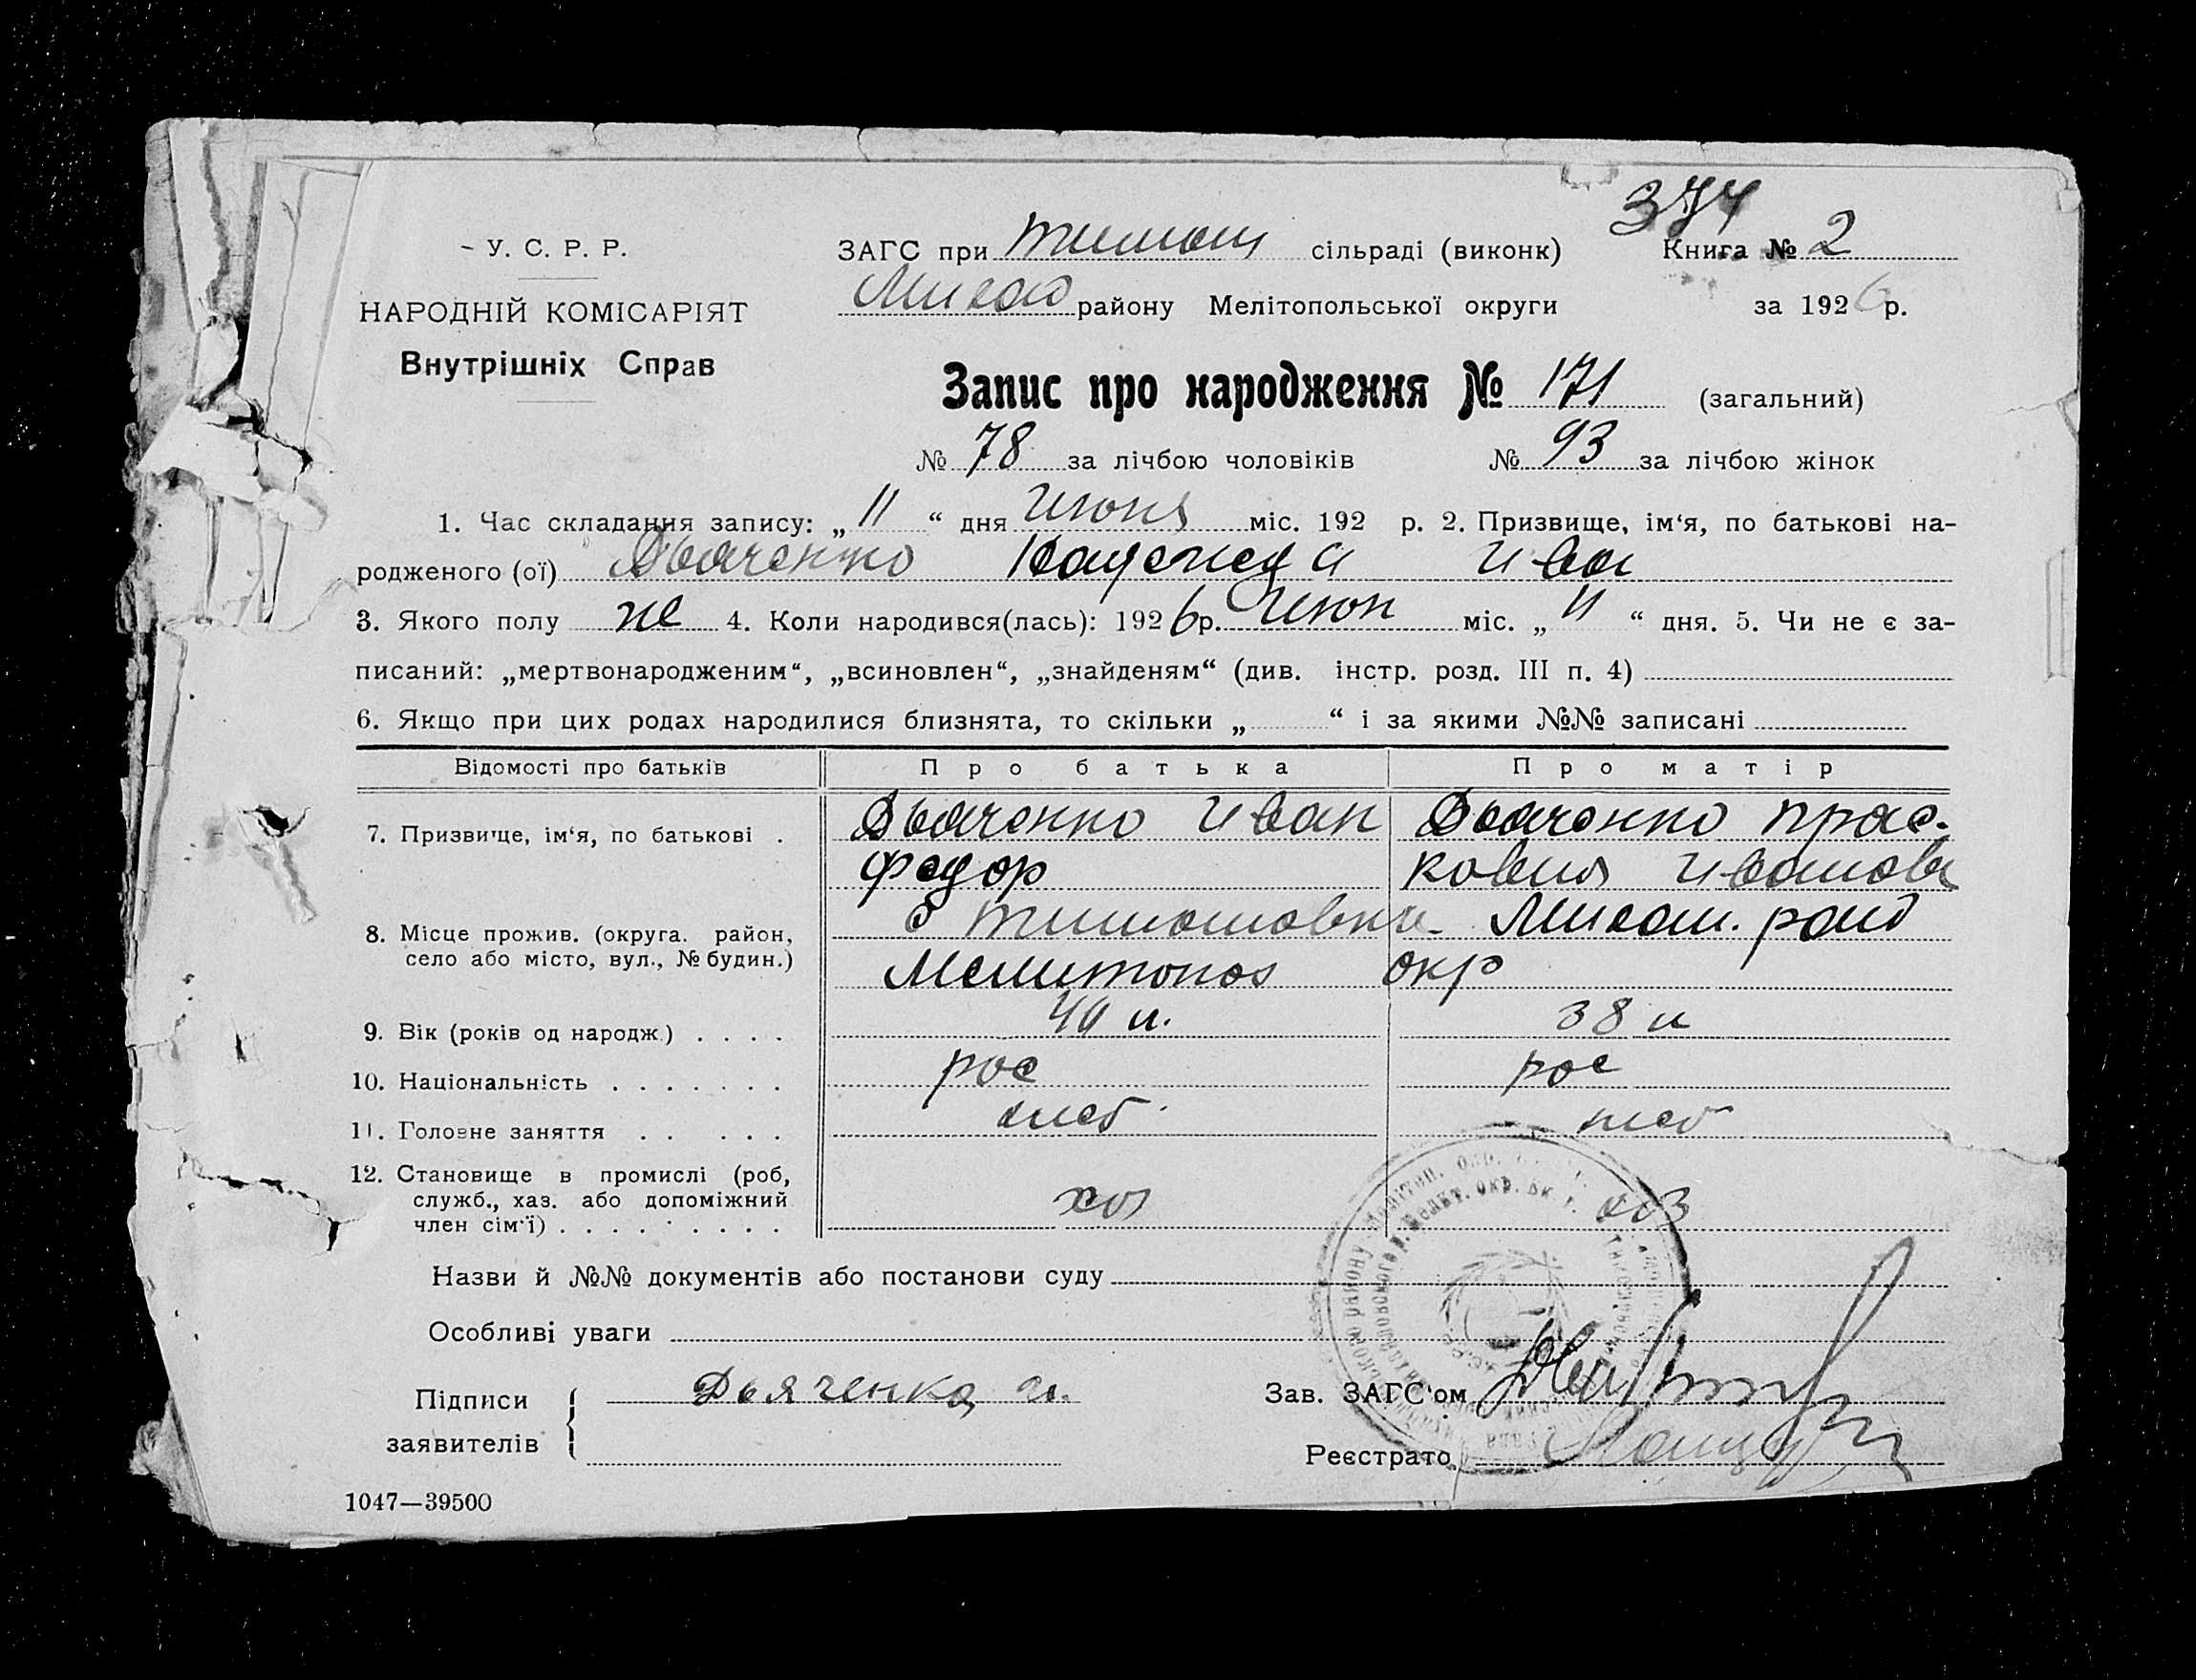 374
У. С. Р. Р.
ЗАГС при тимош сільраді (виконк) Книга № 2
Михай району Мелітопольської округи за 1926 р.
НАРОДНІЙ КОМІСАРІЯТ
Внутрішніх Справ
Запис про народження № 171 (загальний)
№ 78 за лічбою чоловіків № 93 за лічбою жінок
1. Час складання запису: „ 11 “ дня Июня міс. 192 р. 2. Призвище, ім‘я, по батькові на-
родженого (ої) Дьяченко Надежда Ива
3. Якого полу же 4. Коли народився(лась): 1926 р. Июн міс. „ 11 “ дня. 5. Чи не є за-
писаний: „мертвонародженим“, „всиновлен“, „знайденям“ (див. інстр. розд. III п. 4)
6. Якщо при цих родах народилися близнята, то скільки „ “ і за якими №№ записані
Відомості про батьків Про батька Про матір
7. Призвище, ім‘я, по батькові . Дьяченко Иван Дьяченко Прас-
Федор ковия Иванов
8. Місце прожив. (округа. район, с Тимошовка Михай. райо
село або місто, вул., № будин.) Мелитопол окр
9. Вік (років од народж.) . . . . 38 л
10. Національність . . . . . . . рос рос
11. Головне заняття . . . . . хлеб хлеб
12. Становище в промислі (роб,
служб., хаз. або допоміжний хоз хоз
член сім‘ї) . . . . . . . . .
Назви й №№ документів або постанови суду
Особливі уваги
Підписи Дьяченко Зав. ЗАГС‘ом
заявителів Реєстрато
1047—39500